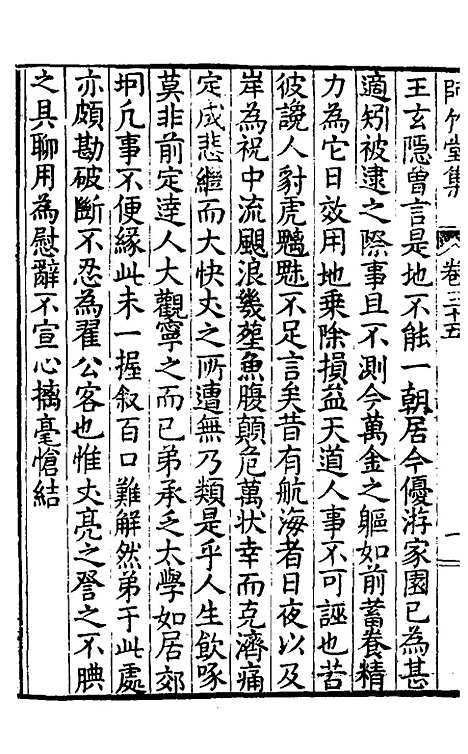 師竹堂集 卷三十五 一
王玄隱曾言是地不能一朝居今優游家園已為甚
適矧被逮之際事且不測今萬金之軀如前蓄養精
力為它日效用地乗除損益天道人事不可誣也苦
彼讒人豺虎魑魅不足言矣昔有航海者日夜以及
岸為祝中流颶浪幾塟魚腹顛危萬狀幸而克濟痛
定成悲繼而大快丈之所遭無乃類是乎人生飲啄
莫非前定達人大觀寧之而已弟承乏太學如居郊
坰凢事不便緣此未一握叙百口難解然弟于此處
亦頗勘破斷不忍為翟公客也惟丈亮之詧之不腆
之具聊用為慰辭不宣心摛毫愴結